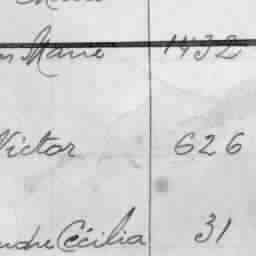 Marie 1432
Victor 626
Cécilia 31